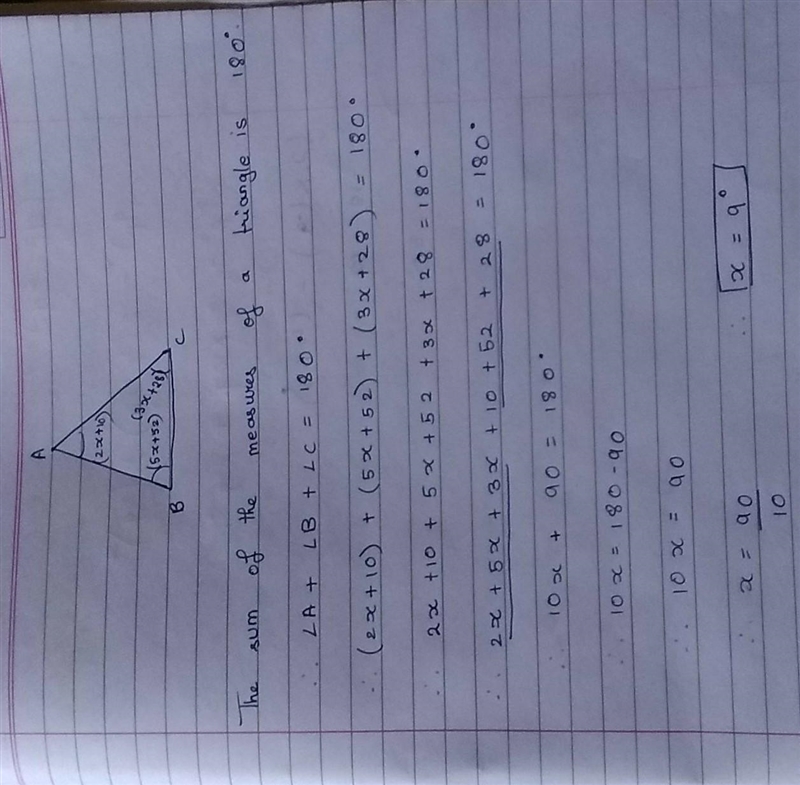 A
(2x+10)
(5x+52) (3x+28)
B C
The sum of the measures of a triangle is 180°.
∴ ∠A + ∠B + ∠C = 180°
∴ (2x+10) + (5x+52) + (3x+28) = 180°
∴ 2x +10 + 5x + 52 + 3x + 28 = 180°
∴ 2x + 5x + 3x + 10 + 52 + 28 = 180°
∴ 10x + 90 = 180°
∴ 10x = 180 - 90
∴ 10x = 90
∴ x = 90/10 ∴ x = 9°